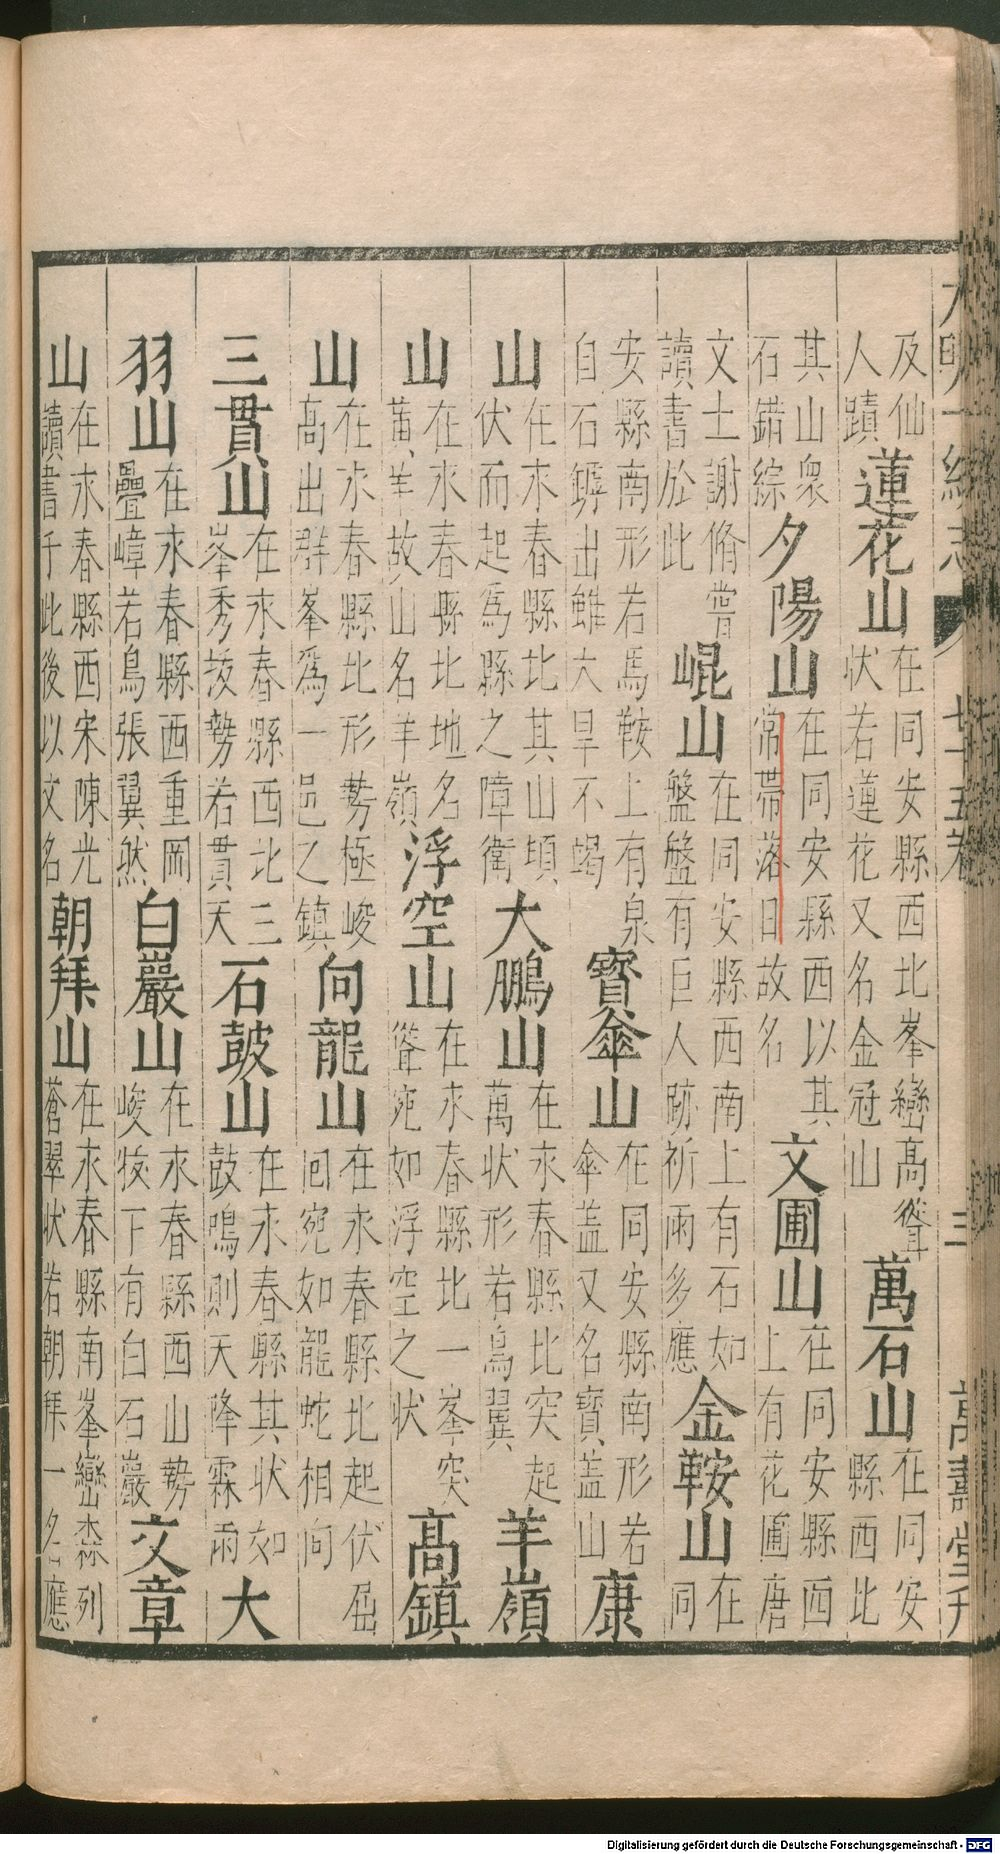 大明一統志 七十五卷 三 萬壽堂刋
及仙人蹟 蓮花山 在同安縣西北峯巒高聳狀若蓮花又名金冠山 萬石山 在同安縣西北
其山衆石錯綜 夕陽山 在同安縣西以其常帶落日故名 文圃山 在同安縣西上有花圃唐
文士謝脩嘗讀書於此 崐山 在同安縣西南上有石如盤盤有巨人跡祈雨多應 金鞍山 在同
安縣南形若馬鞍上有泉自石罅出雖大旱不竭 寳傘山 在同安縣南形若傘蓋又名寳蓋山 康
山 在永春縣北其山頃伏而起爲縣之障衛 大鵬山 在永春縣北突起萬狀形若鳥翼 羊嶺
山 在永春縣北地名莆羊故山名羊嶺 浮空山 在永春縣北一峯突聳宛如浮空之狀 髙鎮
山 在永春縣北形勢極峻髙出群峯爲一邑之鎮 向龍山 在永春縣北起伏屈回宛如龍蛇相向
三貫山 在永春縣西北三峯秀拔勢若貫天 石皷山 在永春縣其狀如鼓鳴則天降霖雨 大
羽山 在永春縣西重岡疊嶂若鳥張翼然 白巖山 在永春縣西山勢峻拔下有白石巖 文章
山 在永春縣西宋陳光讀書于此後以文名 朝拜山 在永春縣南峯巒森列蒼翠狀若朝拜一名應
Digitalisierung gefördert durch die Deutsche Forschungsgemeinschaft - DFG